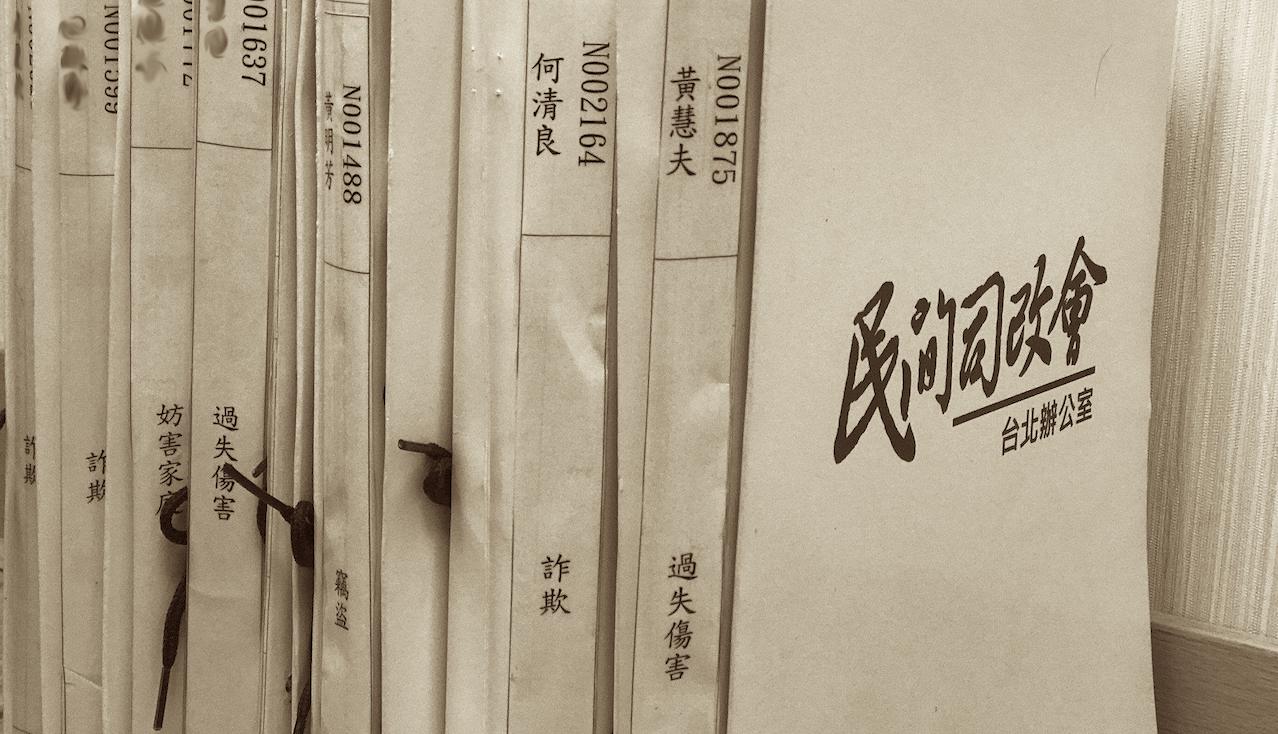 民間司改會
台北辦公室
N001875
黃慧夫
過失傷害
N002164
何清良
詐欺
N001488
黃明芳
竊盜
001637
過失傷害
妨害家庭
N001599
詐欺
詐欺